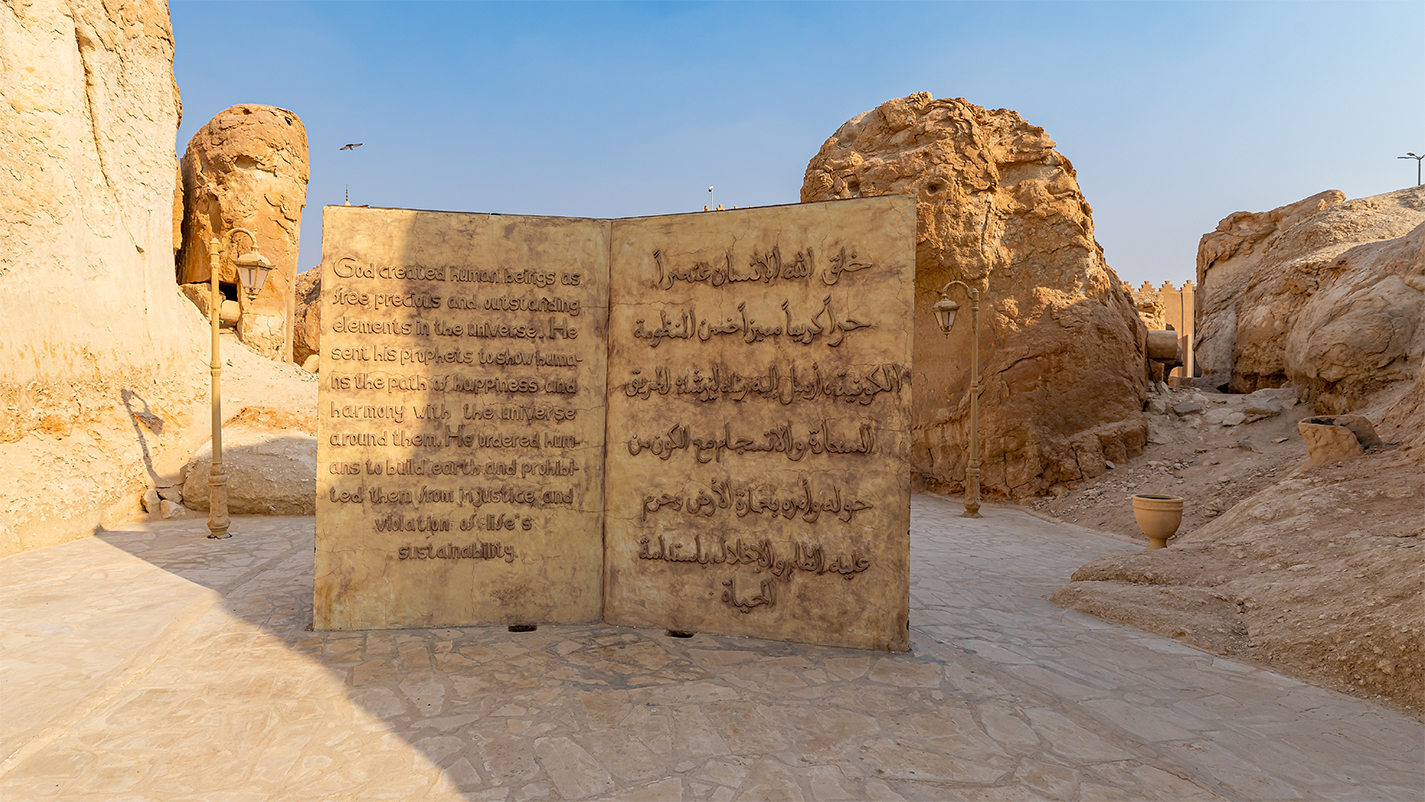 God created human beings as
free, precious and outstanding
elements in the universe. He
sent his prophets to show huma-
ns the path of happiness and
harmony with the universe
around them. He ordered hum-
ans to build earth and prohibi-
ted them from injustice and
violation of life's
sustainability.
خلق الله الإنسان عنصراً
حراً كريماً مميزاً ضمن المنظومة
الكونية، وأرسل إليه رسله ليرشدوه لطريق
السعادة والانسجام مع الكون من
حوله وأمره بعمارة الأرض وحرم
عليه الظلم والإخلال باستدامة
الحياة